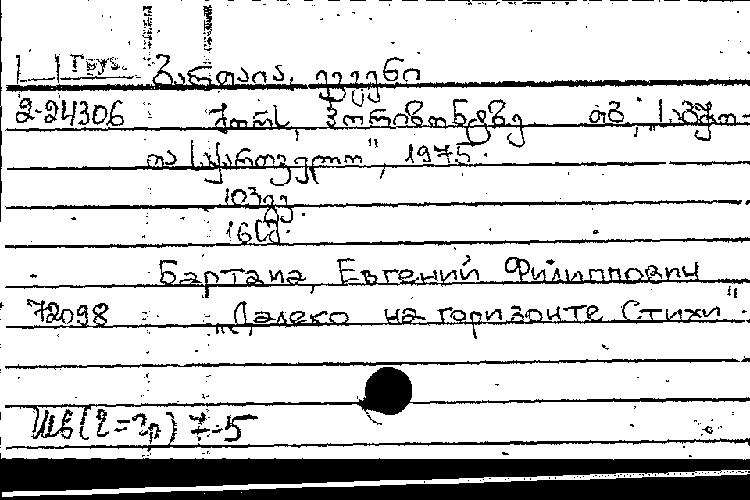 Груз.
ბართაია, ევგენი
2-24306 შორს, ჰორიზონტზე. თბ., „საბჭო-
თა საქართველო", 1975.
103გვ.
16სმ.
Бартаиа, Евгений Филиппович
72098 „Далеко на горизонте Стихи".
Шб(2=Гр) 7-5